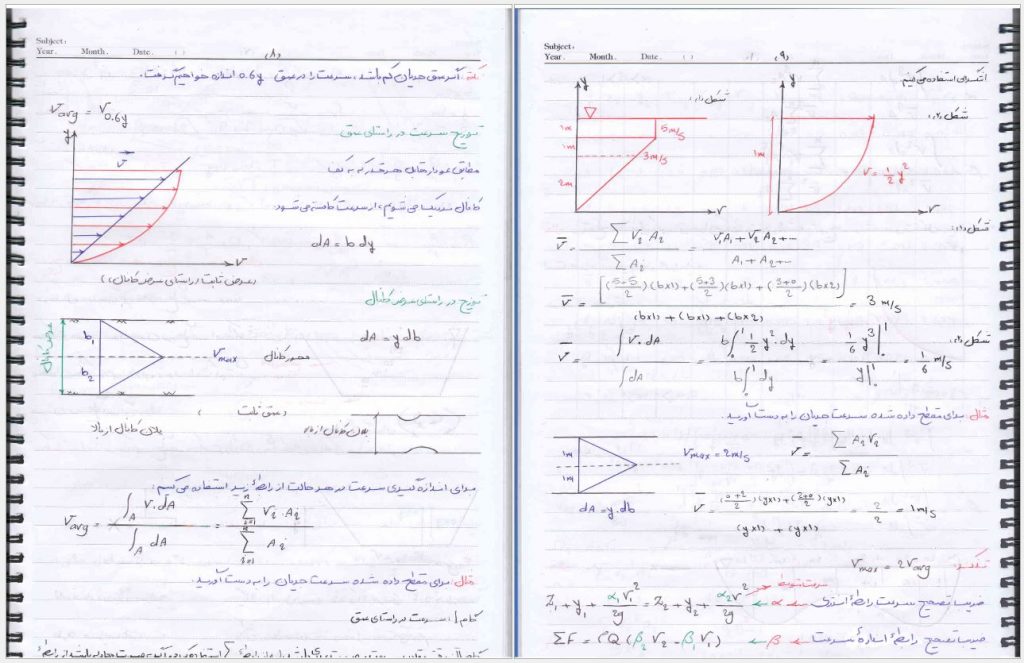 Subject:
Year. Month. Date. ( )
(۸)
نکته: اگر عمق جریان کم باشد، سرعت را در عمق 0.6y اندازه خواهیم گرفت.
Vavg = V0.6y
توزیع سرعت در راستای عمق
y
V
مطابق نمودار مقابل هر قدر که به کف
کانال نزدیک می شویم، از سرعت کاسته می شود
dA = b dy
V
(عرض ثابت در راستای سرعت کانال)
توزیع در راستای عرض کانال
عرض کانال
b1
b2
Vmax
محور کانال
dA = y db
(عمق ثابت)
پلان کانال از بالا
پلان کانال از بالا
برای اندازه گیری سرعت در هر حالت از رابطهٔ زیر استفاده می کنیم:
Vavg = ∫A V.dA / ∫A dA = Σ Vi . Ai / Σ Ai
مثال: برای مقطع داده شده سرعت جریان را به دست آورید.
گام 1: سرعت در راستای عمق
Subject:
Year. Month. Date. ( )
(۹)
انتگرالی استفاده می کنیم
شکل (۱):
شکل (۲):
y
1m
1m
2m
5m/s
3m/s
V
y
1m
V = 1/2 y²
V
شکل (۱):
V̄ = Σ Vi Ai / Σ Ai = V1A1 + V2A2 + ... / A1 + A2 + ...
V̄ = [((5+5)/2)(b×1) + ((5+3)/2)(b×1) + ((3+0)/2)(b×2)] / (b×1) + (b×1) + (b×2) = 3 m/s
شکل (۲):
V̄ = ∫V.dA / ∫dA = b∫₀¹ 1/2 y².dy / b∫₀¹ dy = 1/6 y³|₀¹ / y|₀¹ = 1/6 m/s
مثال: برای مقطع داده شده سرعت جریان را به دست آورید.
1m
1m
Vmax = 2m/s
V̄ = Σ Ai Vi / Σ Ai
dA = y.db
V̄ = ((0+2)/2)(y×1) + ((2+0)/2)(y×1) / (y×1) + (y×1) = 2/2 = 1m/s
Vmax = 2Vavg
سرعت متوسط
ضریب تصحیح سرعت رابطهٔ انرژی ← α ← Z1 + y1 + α1V1²/2g = Z2 + y2 + α2V²/2g
ضریب تصحیح رابطهٔ اندازه سرعت ← β ← ΣF = ρQ (β2 V2 - β1 V1)